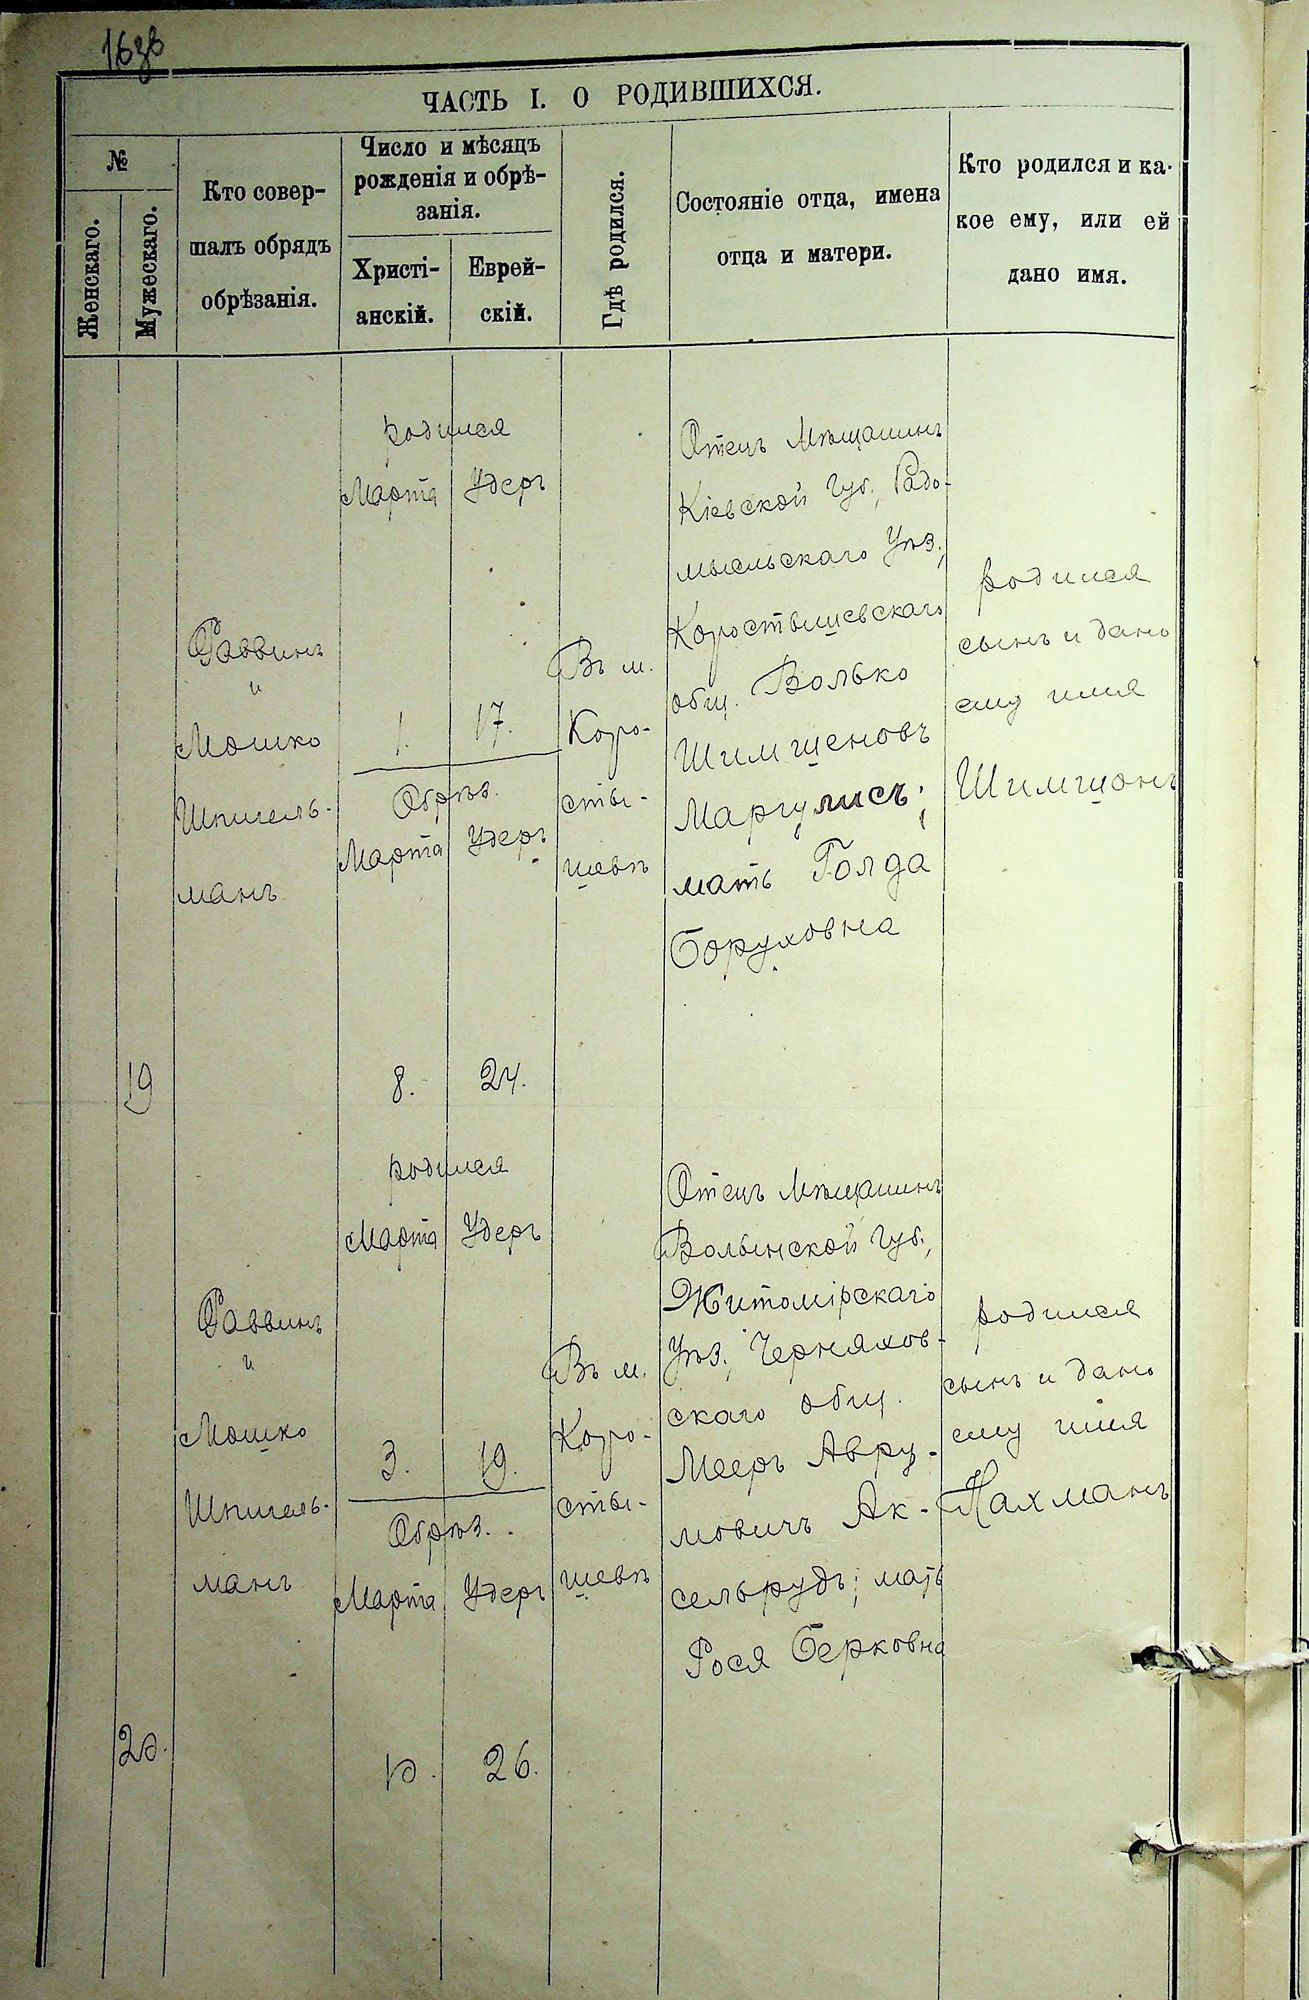 163в
ЧАСТЬ I. О РОДИВШИХСЯ.
№
Женскаго.
Мужескаго.
Кто совер-
шалъ обрядъ
обрѣзанія.
Число и мѣсяцъ
рожденія и обрѣ-
занія.
Христі-
анскій.
Еврей-
скій.
Гдѣ родился.
Состояніе отца, имена
отца и матери.
Кто родился и ка-
кое ему, или ей
дано имя.
19
Раввинъ
и
Мошко
Шпигель-
манъ
родился
Марта Удеръ
1. 17.
Обрѣз.
Марта Удеръ
8. 24.
Въ м.
Коро-
сты-
шевѣ
Отецъ Мѣщанинъ
Кіевской Губ., Радо-
мысльскаго Уѣз.,
Коростышевскаго
общ. Волько
Шимшеновъ
Маргулисъ;
мать Голда
Боруховна
родился
сынъ и дано
ему имя
Шимшонъ
20.
Раввинъ
и
Мошко
Шпигель-
манъ
родился
Марта Удеръ
3. 19.
Обрѣз.
Марта Удеръ
10. 26.
Въ м.
Коро-
сты-
шевѣ
Отецъ Мѣщанинъ
Волынской Губ.,
Житомірскаго
Уѣз., Черняхов-
скаго общ.
Мееръ Авру-
мовичъ Ак-
сельрудъ; мать
Рося Берковна
родился
сынъ и дано
ему имя
Нахманъ